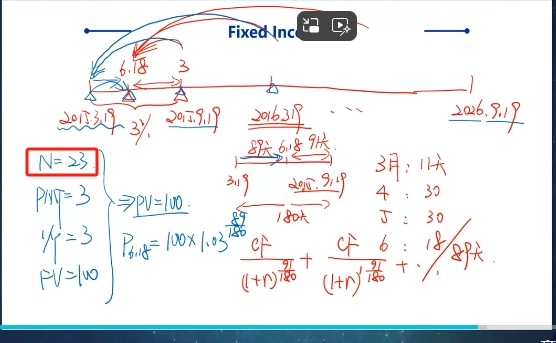 Fixed Inc
6.18 3
2015.3.19 3% 2015.9.19 2016.3.19 ... 2026.9.19
89天 6.18 91天
3.19 2015.9.19
180天
N=23
PMT=3
I/Y=3
FV=100
⇒PV=100
P6.18=100×1.03^(89/180)
3月: 11天
4 : 30
5 : 30
6 : 18
89天
CF/(1+r)^(91/180) + CF/(1+r)^(1 91/180) + ...